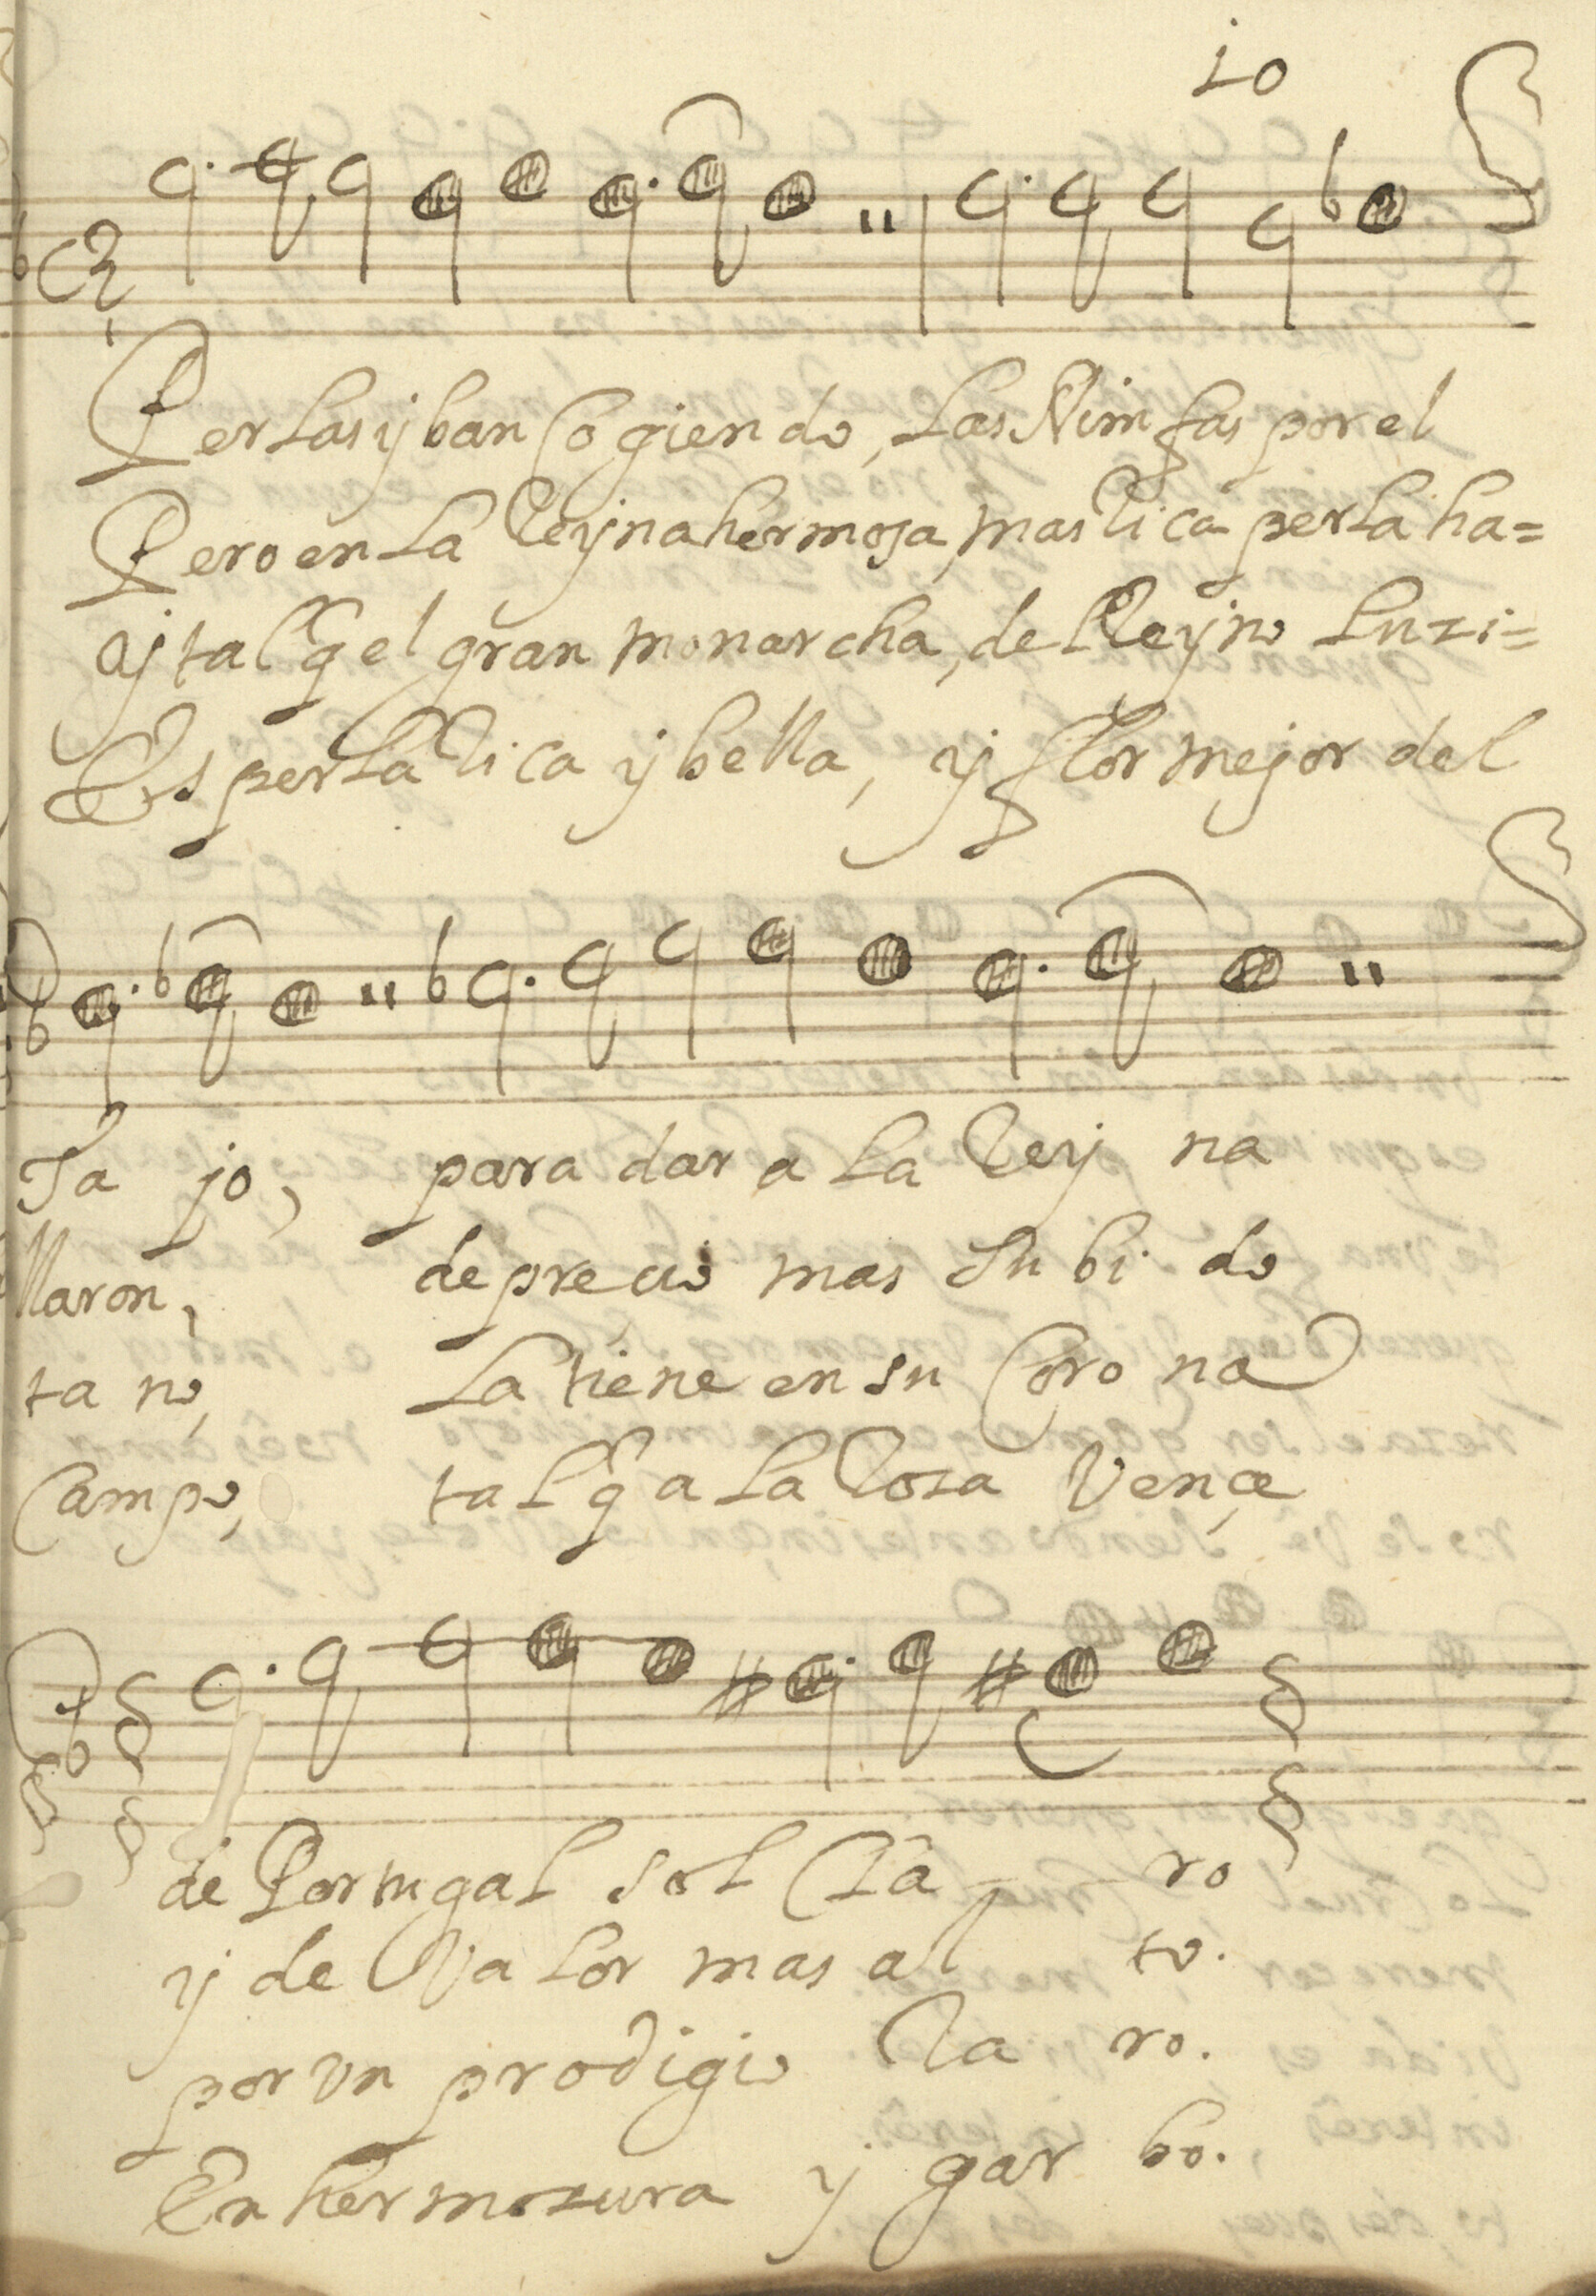 10
Perlas yban Cogiendo, las Nimfas por el
Pero en la Reyna hermosa, mas Rica perla ha=
Ay tal q̃ el gran monarcha, del Reyno Luzi=
Es perla Rica y bella, y flor mejor del
Ta jo, para dar a la Rey na
llaron, de precio mas Subi do
ta no, La tiene en su Coro na
Campo, tal q̃ a la Rosa Vençe
de Portugal sol Cla - - ro
y de Valor mas al to.
por vn prodigio Ra ro.
En hermozura y gar bo.